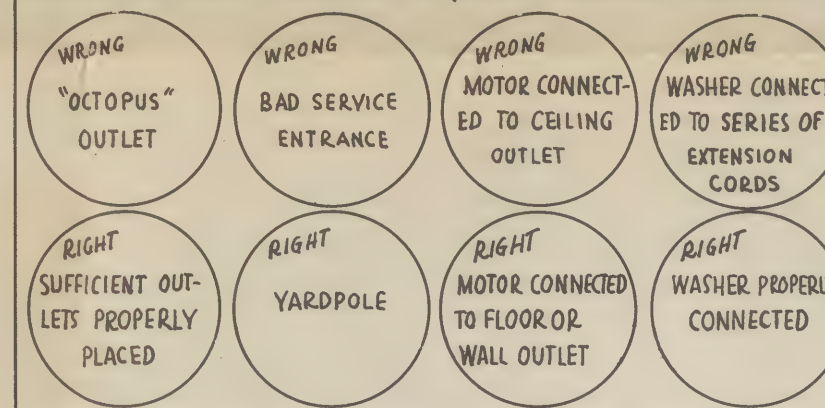 WRONG
"OCTOPUS"
OUTLET
WRONG
BAD SERVICE
ENTRANCE
WRONG
MOTOR CONNECT-
ED TO CEILING
OUTLET
WRONG
WASHER CONNECT
ED TO SERIES OF
EXTENSION
CORDS
RIGHT
SUFFICIENT OUT-
LETS PROPERLY
PLACED
RIGHT
YARDPOLE
RIGHT
MOTOR CONNECTED
TO FLOOR OR
WALL OUTLET
RIGHT
WASHER PROPERL
CONNECTED